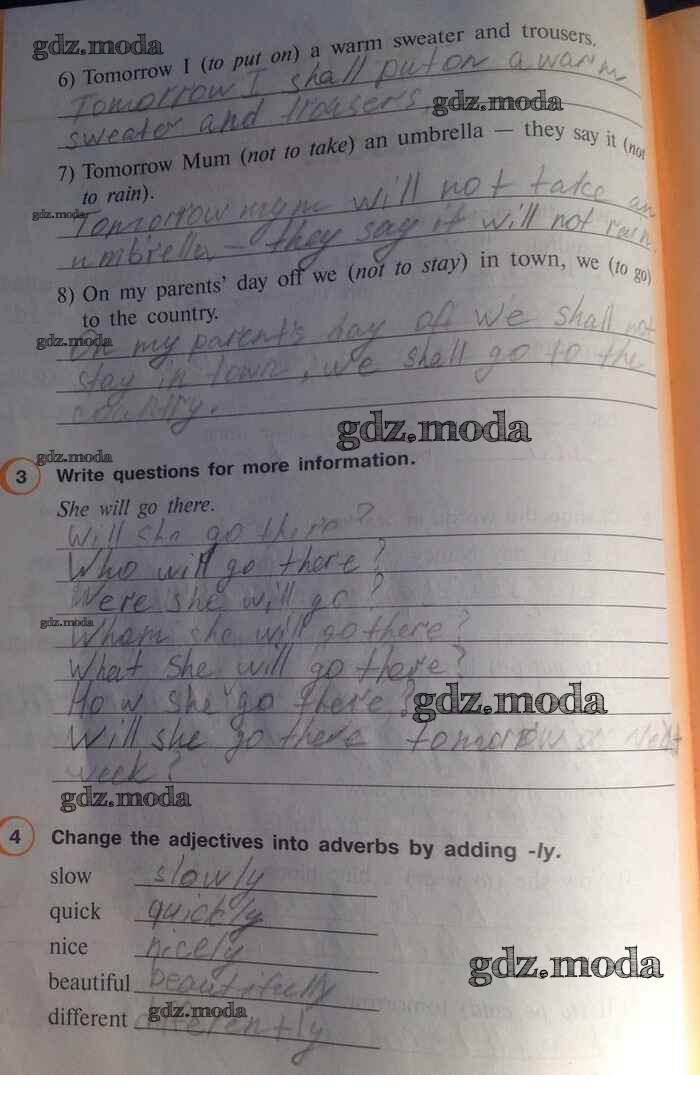 gdz.moda
6) Tomorrow I (to put on) a warm sweater and trousers.
Tomorrow I shall put on a warm
sweater and trousers.
gdz.moda
7) Tomorrow Mum (not to take) an umbrella — they say it (not
to rain).
gdz.moda
Tomorrow mym will not take an
umbrella – they say it will not rain.
8) On my parents' day off we (not to stay) in town, we (to go)
to the country.
gdz.moda
On my parent's day of we shall not
stay in town, we shall go to the
country.
gdz.moda
gdz.moda
3 Write questions for more information.
She will go there.
Will she go there?
Who will go there?
Were she will go?
gdz.moda
Wham she will go there?
What she will go there?
How she go there?
gdz.moda
Will she go there tomorrow or next
week?
gdz.moda
4 Change the adjectives into adverbs by adding -ly.
slow slowly
quick quickly
nice nicely
gdz.moda
beautiful beautifully
different differently
gdz.moda